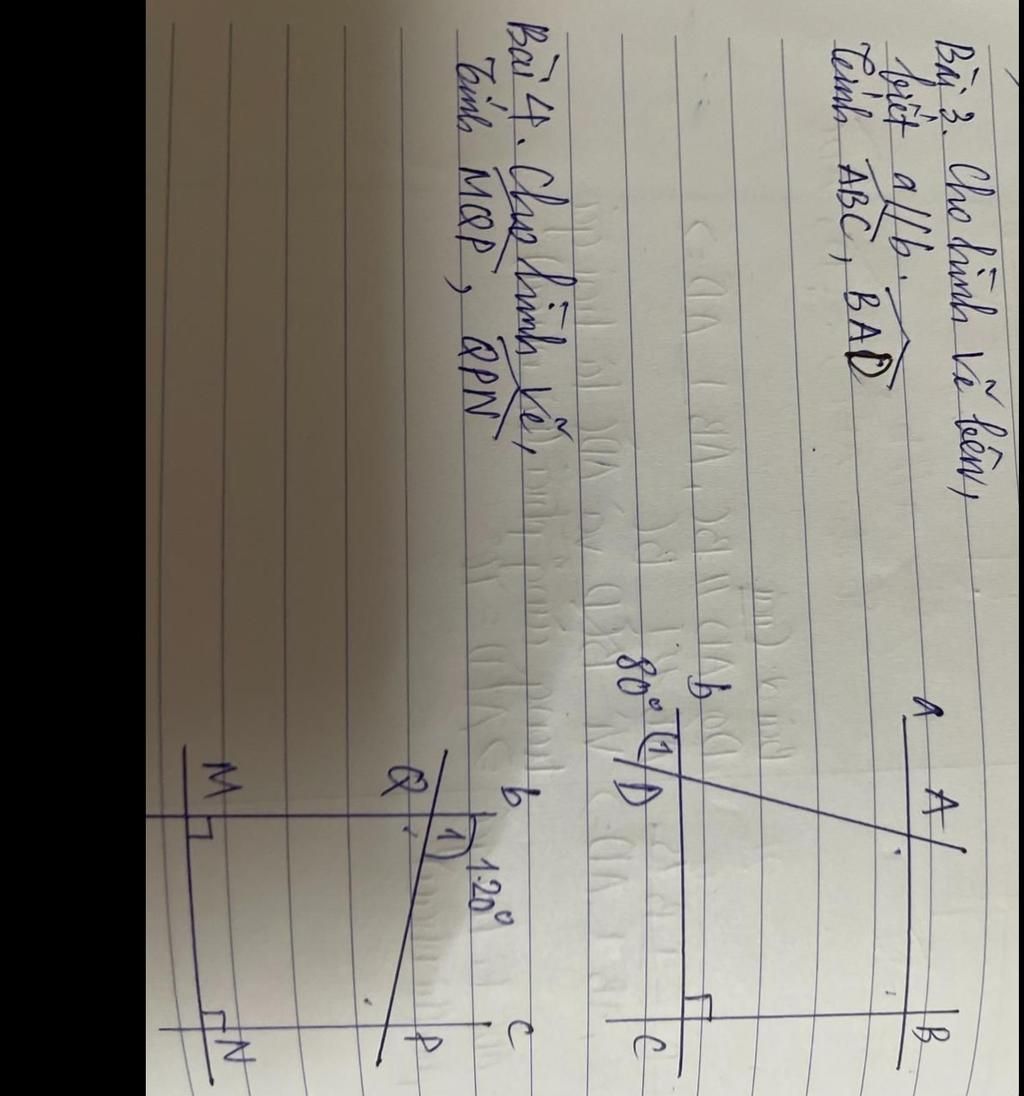 Bài 3. Cho hình vẽ bên,
biết a//b.
Tính ABC, BAD
a A B
b
80° 1 D C
Bài 4. Cho hình vẽ,
Tính MQP, QPN
b c
1 120°
Q P
M N